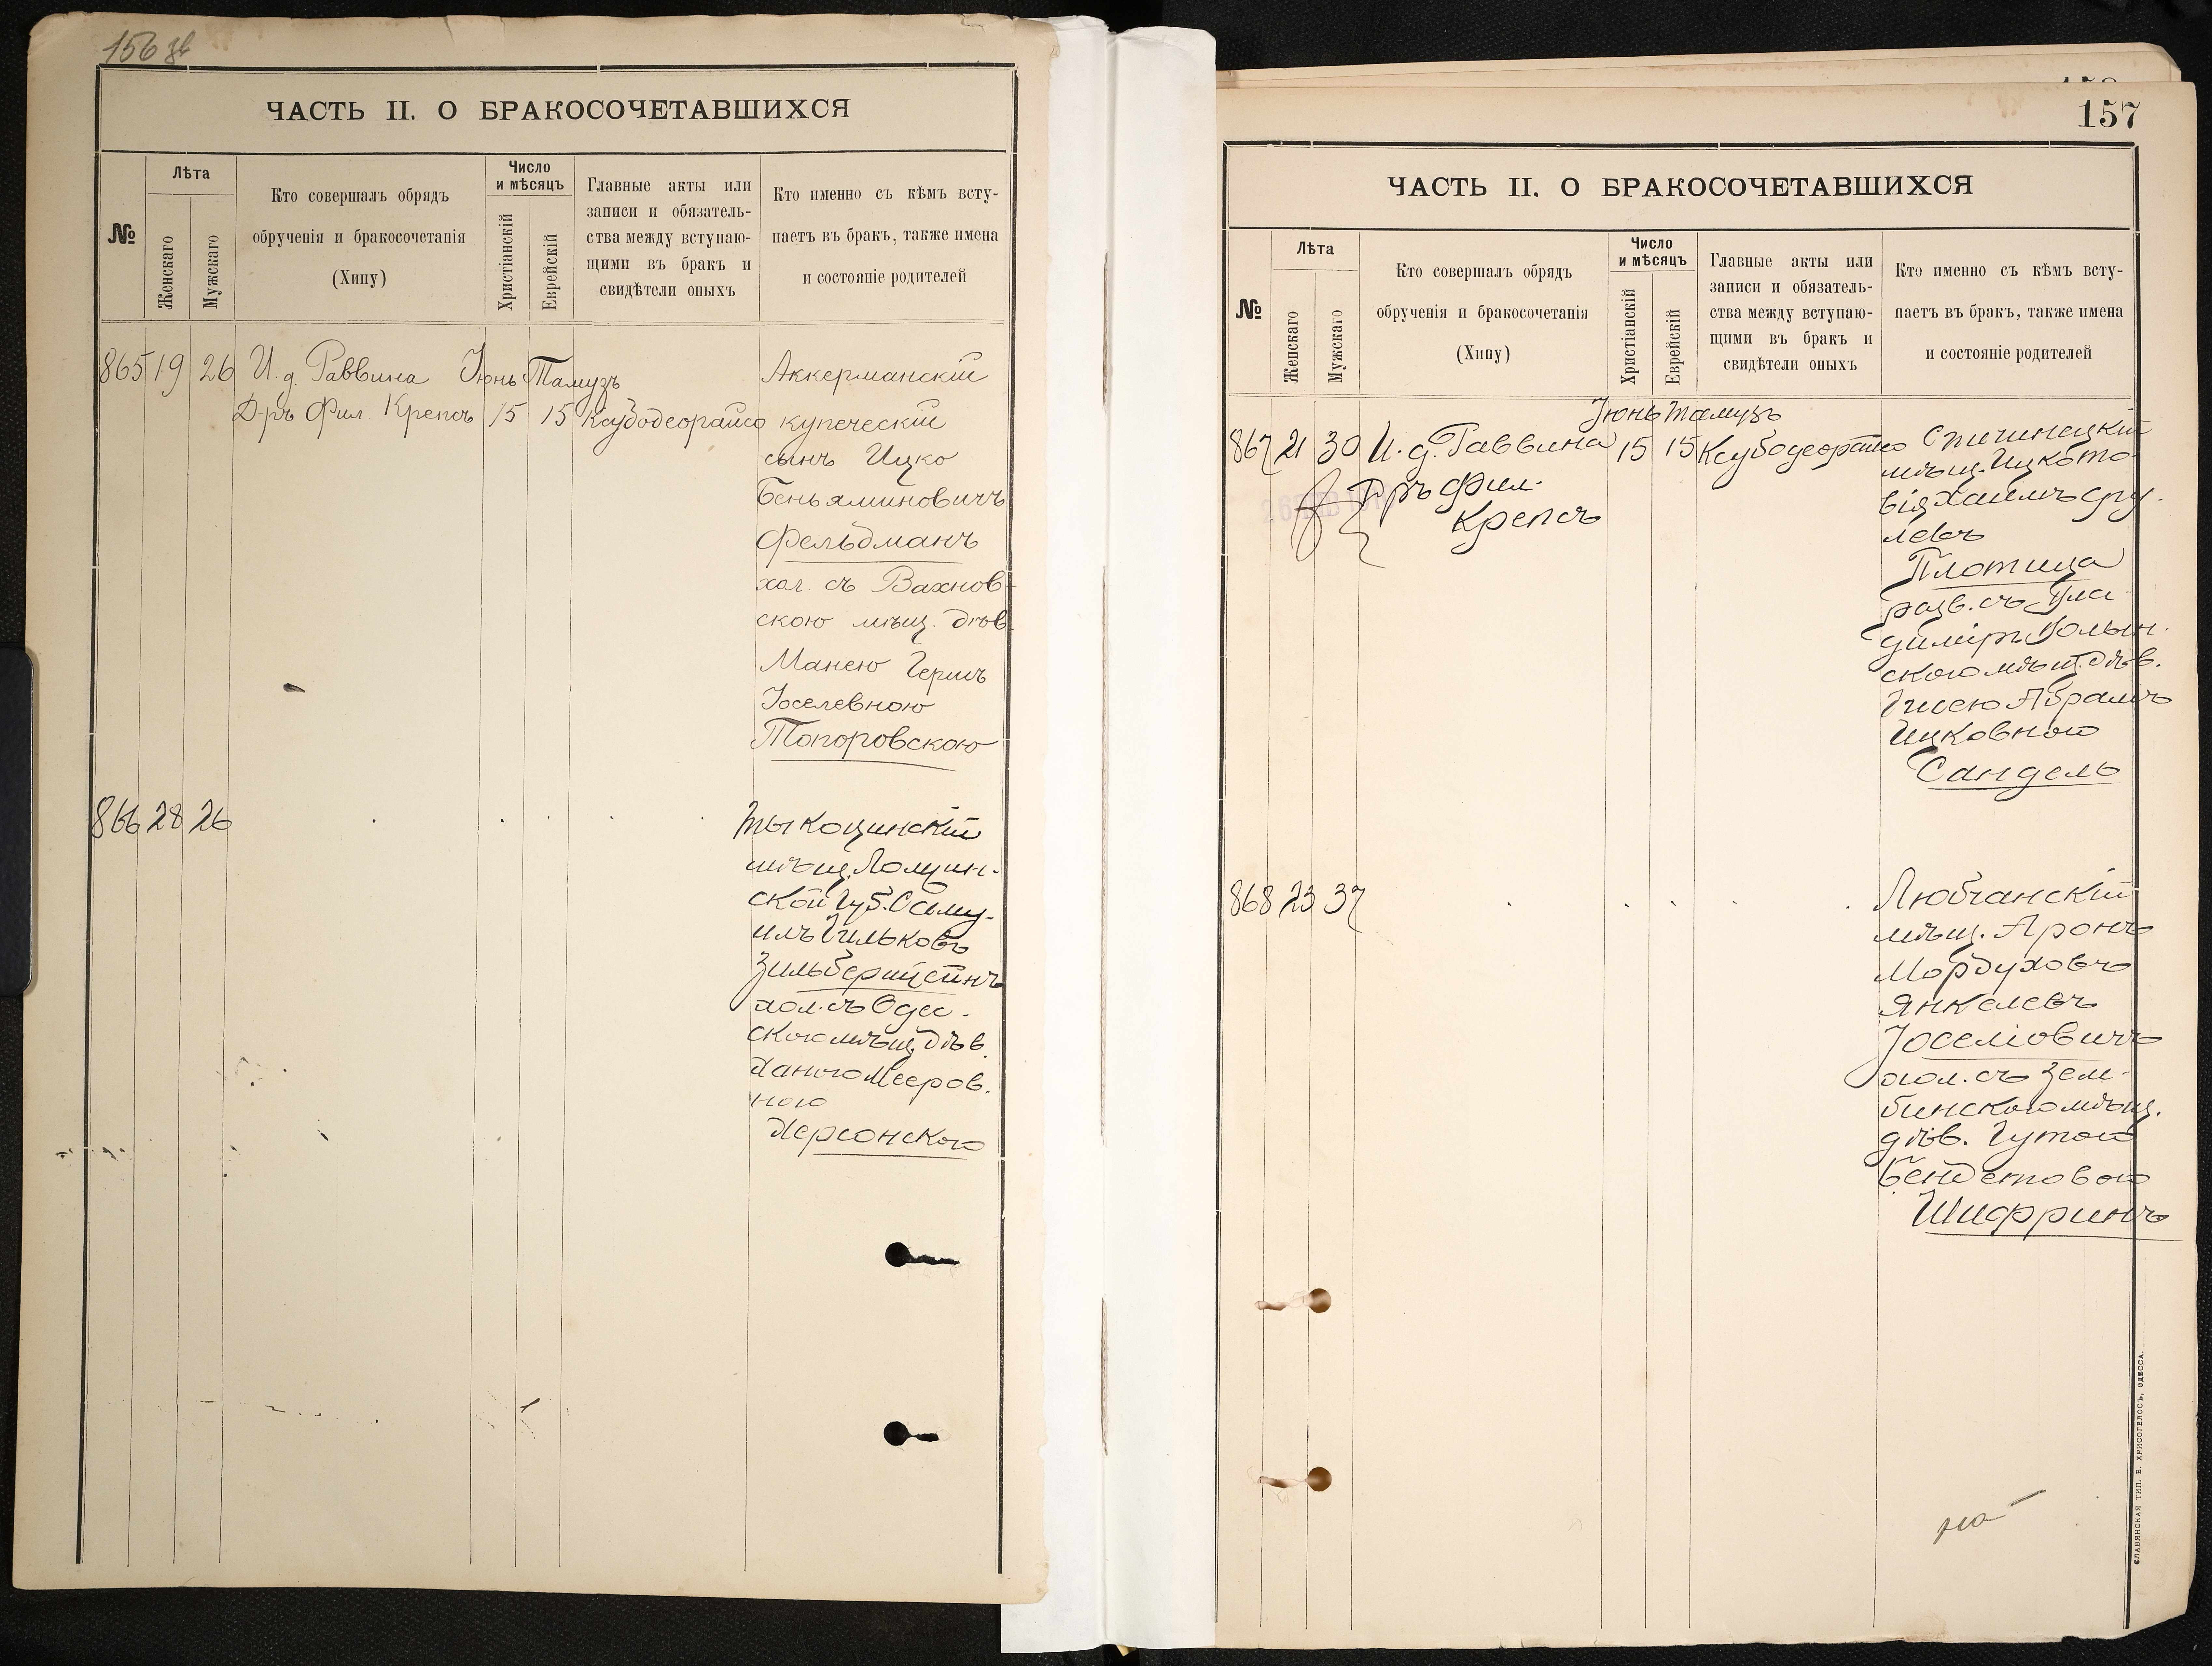 156 зв
ЧАСТЬ II. О БРАКОСОЧЕТАВШИХСЯ
№
Лѣта
Женскаго
Мужскаго
Кто совершалъ обрядъ
обрученія и бракосочетанія
(Хипу)
Число
и мѣсяцъ
Христіанскій
Еврейскій
Главные акты или
записи и обязатель-
ства между вступаю-
щими въ бракъ и
свидѣтели оныхъ
Кто именно съ кѣмъ всту-
паетъ въ бракъ, также имена
и состояніе родителей
865 19 26 И. д. Раввина Іюнь Тамузъ Аккерманскій
Д-ръ Фил. Крепсъ 15 15 Ксубодеорайсо купеческій
сынъ Ицко
Беньяминовичъ
Фельдманъ
хол. съ Вахнов-
скою мѣщ. дѣв.
Манею Гершъ
Іоселевною
Топоровскою
866 28 26 Тыкоцинскій
мѣщ. Ломжин-
ской Губ. Саму-
илъ Гильковъ
Зильберштейнъ
хол. съ Одес-
скою мѣщ. дѣв.
Ханою Мееров-
ною
Херсонскою
157
ЧАСТЬ II. О БРАКОСОЧЕТАВШИХСЯ
№
Лѣта
Женскаго
Мужскаго
Кто совершалъ обрядъ
обрученія и бракосочетанія
(Хипу)
Число
и мѣсяцъ
Христіанскій
Еврейскій
Главные акты или
записи и обязатель-
ства между вступаю-
щими въ бракъ и
свидѣтели оныхъ
Кто именно съ кѣмъ всту-
паетъ въ бракъ, также имена
и состояніе родителей
Іюнь Тамузъ
867 21 30 И. д. Раввина 15 15 Ксубодеорайсо Спичинецкій
Д-ръ Фил. мѣщ. Ицко То-
Крепсъ вія Хаимъ Сру-
левъ
Плотица
разв. съ Вла-
диміръ Волын-
скою мѣщ. дѣв.
Гисею Абрамъ
Ицковною
Сандель
868 23 37 Любчанскій
мѣщ. Аронъ
Мордуховъ
Янкелевъ
Іоселіовичъ
хол. съ Зем-
бинскою мѣщ.
дѣв. Гутою
Бендетовою
Шифринъ
СЛАВЯНСКАЯ ТИП. Е. ХРИСОГЕЛОСЪ, ОДЕССА.